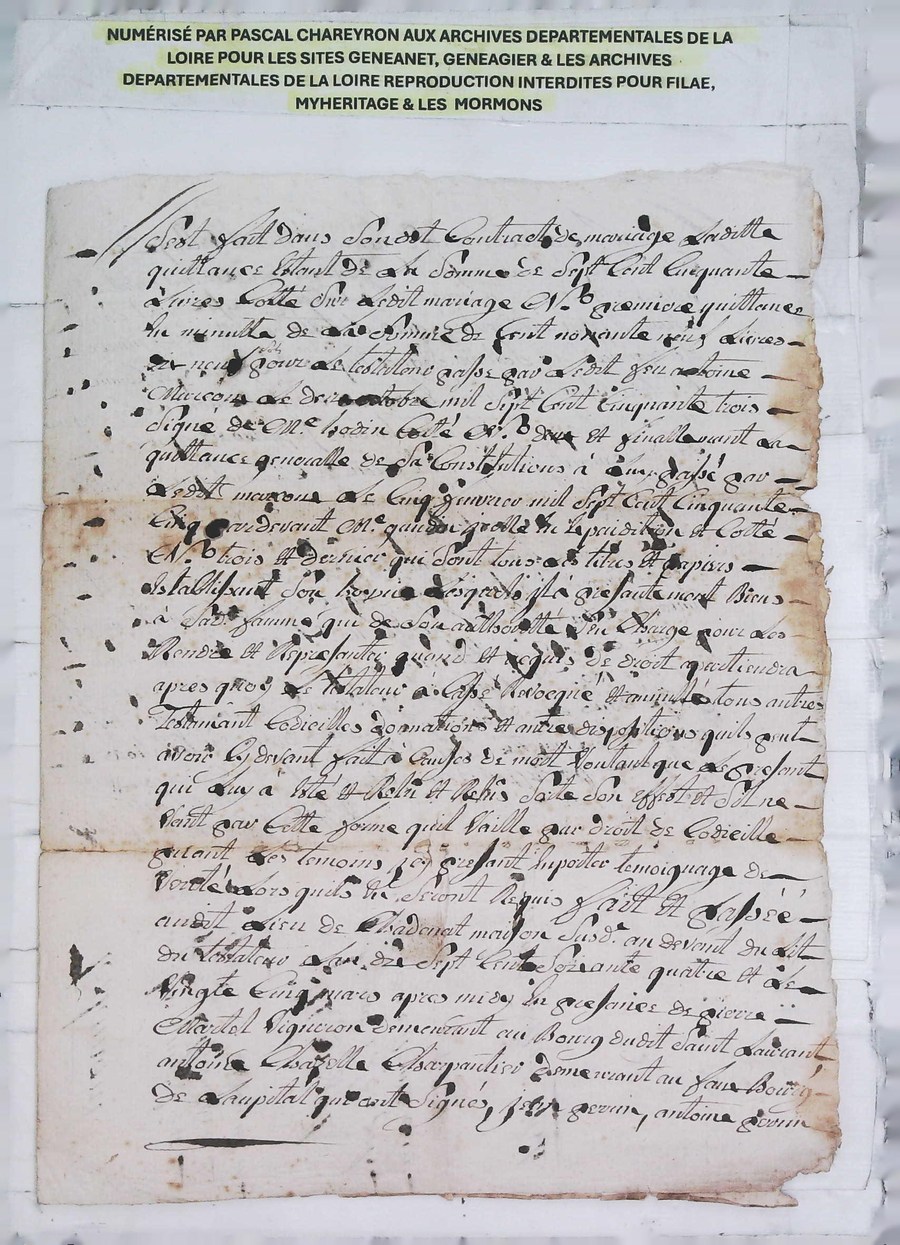 NUMÉRISÉ PAR PASCAL CHAREYRON AUX ARCHIVES DEPARTEMENTALES DE LA
LOIRE POUR LES SITES GENEANET, GENEAGIER & LES ARCHIVES
DEPARTEMENTALES DE LA LOIRE REPRODUCTION INTERDITES POUR FILAE,
MYHERITAGE & LES MORMONS
fait dans Contract de mariage Laditte
quittance Estant de la Somme de Sept Cent Cinquante
Livres Cotté Sur Ledit mariage N.º premiere quittance
En minutte de La Somme de Cent nonante neuf Livres
pour le testateur passé par Ledit feu antoine
Marcoux Le mil Sept Cent Cinquante trois
Signé de M.e Cotté N.º deux Et finallement La
quittance generalle de Sa Constitution à Luy passé par
Ledit marcoux Le Cinq mil Sept Cent Cinquante
Cinq pardevant M.e En Expedition Et Cotté
N.º trois Et dernier qui Sont tous Les titres Et papiers
Establissant Son Lesquels presantement
à Sad. famme qui de Son authorité S'en Charge pour Les
Rendre Et Represanter quand Et Requis de droit apartiendra
apres quoy Le testateur à Cassé Revocqué Et annullé tous autres
Testamant Codicilles donnations Et autre dispositions quils peut
avoir Cy devant fait à Causes de mort Voulant que Le presant
qui Luy à Esté Et Relu Sorte Son Effest Et Sil ne
Vaut par Cette forme quil Vaille par droit de Codicille
priant Les temoins presant temoignage de
Verité Lors quils En Seront Requis fait Et passéé
audit Lieu de Chadenat maison Susd. au devant du Lit
du testateur L'an Sept Cent Soixante quatre Et Le
Vingte Cinq mars apres midy En presance de pierre
Martel Vigneron demeurant au Bourg dudit Saint Laurant
antoine Chazelle Charpantier demeurant au faux Bourg
De Laupital qui ont Signés, , antoine